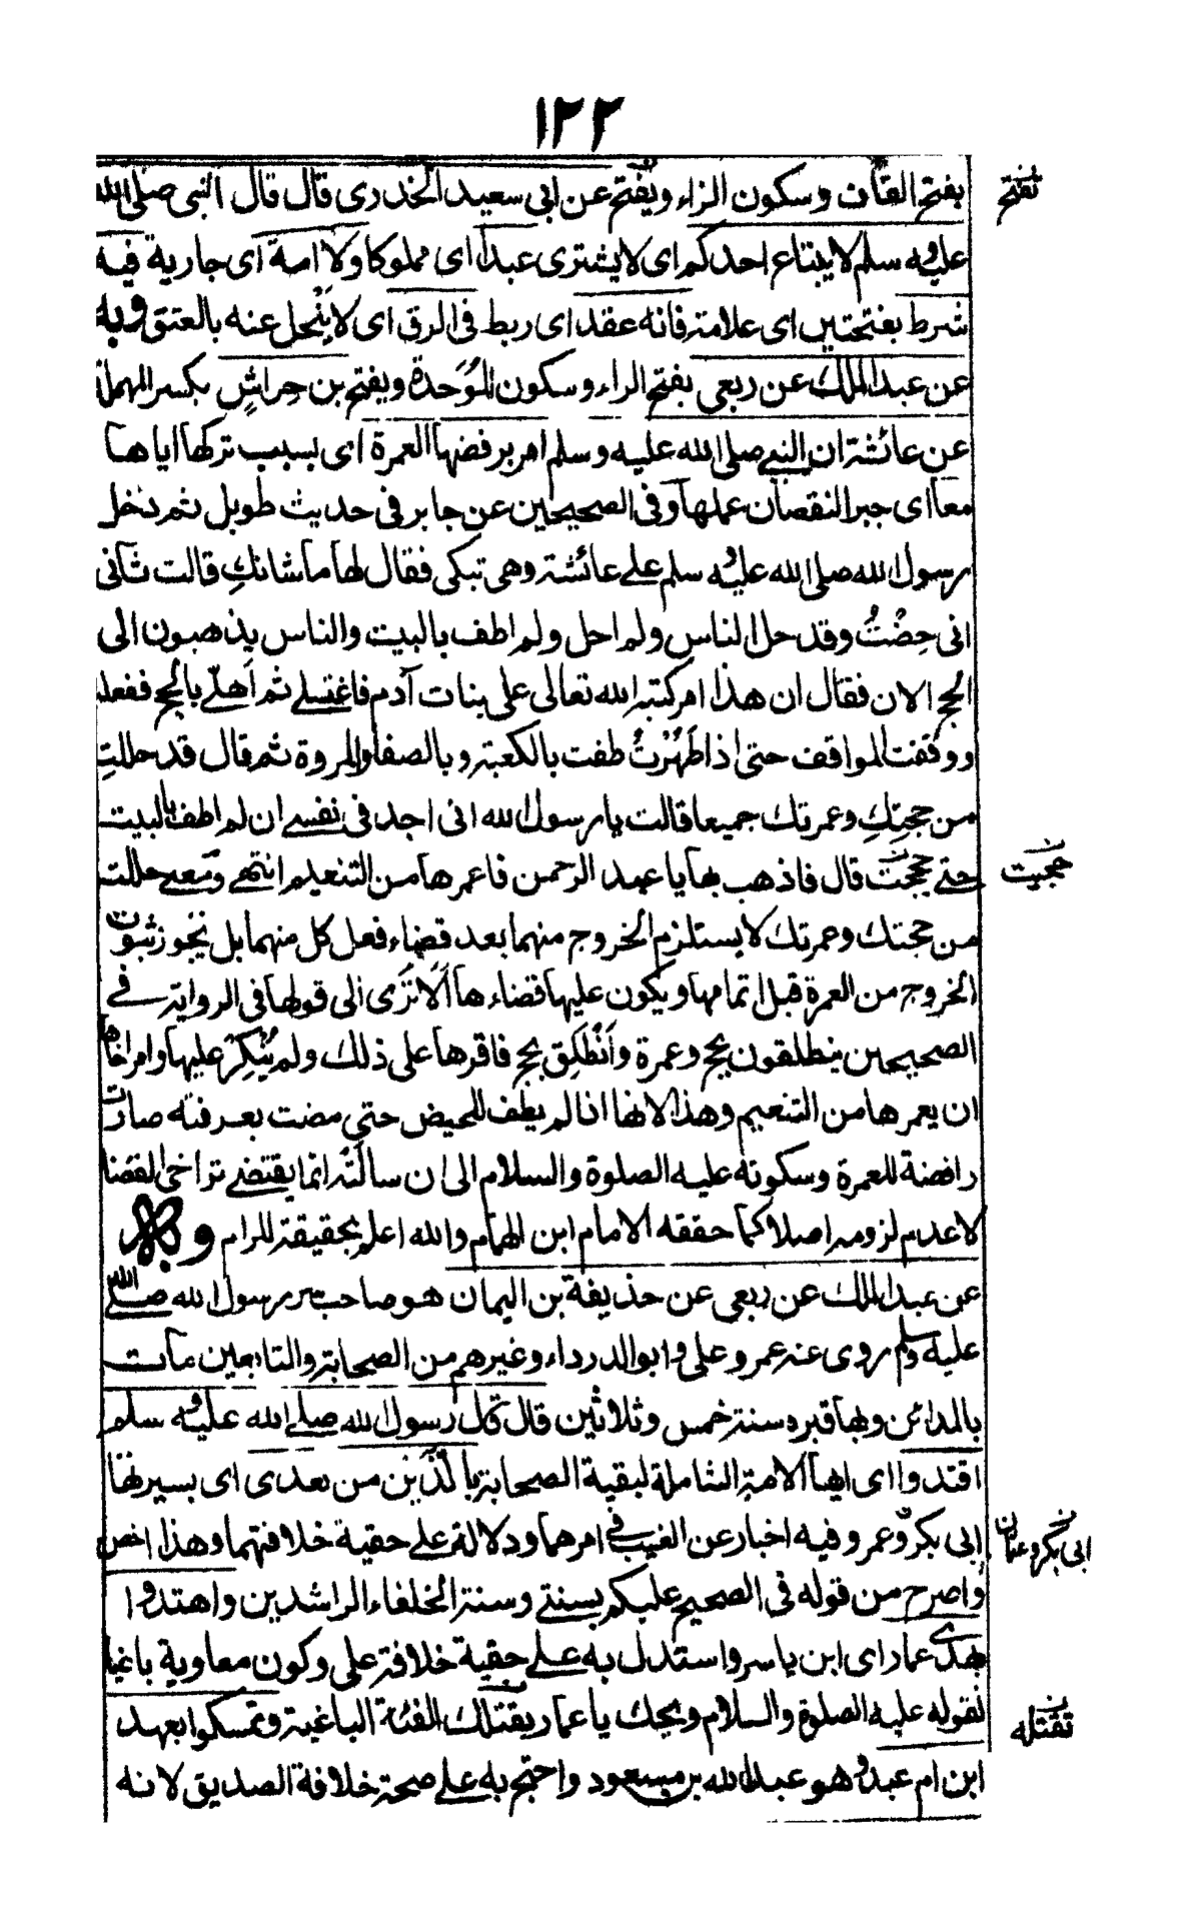 ١٢٢
بفتح القاف وسكون الزاء ويفتح عن ابى سعيد الخدرى قال قال النبى صلى الله
عليه وسلم لا يبتاع احدكم اى لا يشترى عبدا اى مملوكا ولا امة اى جارية فيه
شرط بفتحتين اى علامة فانه عقد اى ربط فى الرق اى لا ينحل عنه بالعتق وبه
عن عبد الملك عن ربعى بفتح الراء وسكون الموحدة ويفتح بن حِراشٍ بكسر المهملة
عن عائشة ان النبى صلى الله عليه وسلم امر برفضها العمرة اى بسبب تركها اياها
معا اى جبر النقصان عملها وفى الصحيحين عن جابر فى حديث طويل ثم دخل
رسول الله صلى الله عليه وسلم على عائشة وهى تبكى فقال لها ما شانكِ قالت شأنى
انى حِضْتُ وقد حل الناس ولم احل ولم اطف بالبيت والناس يذهبون الى
الحج الان فقال ان هذا امر كتبه الله تعالى على بنات آدم فاغتسلى ثم اَهلّى بالحج ففعلت
ووقفت المواقف حتى اذا طَهُرْتُ طفت بالكعبة وبالصفا والمروة ثم قال قد حللتِ
من حجتِكِ وعمرتك جميعا قالت يا رسول الله انى اجد فى نفسى ان لم اطف بالبيت
حتى حججت قال فاذهب بها يا عبد الرحمن فاعمرها من التنعيم انتهى ومعنى حللت
من حجتك وعمرتك لا يستلزم الخروج منهما بعد قضاء فعل كل منهما بل يجوز ثبوت
الخروج من العمرة قبل اتمامها ويكون عليها قضاءها اَلَا تَرَى الى قولها فى الرواية فى
الصحيحين ينطلقون بحج وعمرة واَنْطَلِق بحج فاقرها على ذلك ولم يُنكِرْ عليها وامر اخاها
ان يعمرها من التنعيم وهذا لانها اذا لم يطف للحيض حتى مضت بعرفته صارت
رافضة للعمرة وسكوته عليه الصلوة والسلام الى ان سالته انما يقتضى تراخى القضا
لا عدم لزومه اصلا كما حققه الامام ابن الهمام والله اعلم بحقيقة المرام وبه
عن عبد الملك عن ربعى عن حذيفة بن اليمان هو صاحب سر رسول الله صلى الله
عليه وسلم روى عنه عمر وعلى وابو الدرداء وغيرهم من الصحابة والتابعين مات
بالمدائن وبها قبره سنة خمس وثلاثين قال قال رسول الله صلى الله عليه وسلم
اقتدوا اى ايها الامة الشاملة لبقية الصحابة بالذَين من بعدى اى بسيرتها
ابى بكر وعمر وفيه اخبار عن الغيب فى امرهما ودلالة على حقية خلافتهما وهذا اخص
واصرح من قوله فى الصحيح عليكم بسنتى وسنة الخلفاء الراشدين واهتدوا
بهدى عمار اى ابن ياسر واستدل به على حقية خلافة على وكون معاوية باغيا
لقوله عليه الصلوة والسلام ويحك يا عمار يقتلك الفئة الباغية وتمسكوا بعهد
ابن ام عبد وهو عبد الله بن مسعود واحتج به على صحة خلافة الصديق لانه
تفتح
حجيت
ابى بكر وعثمان
تقتله